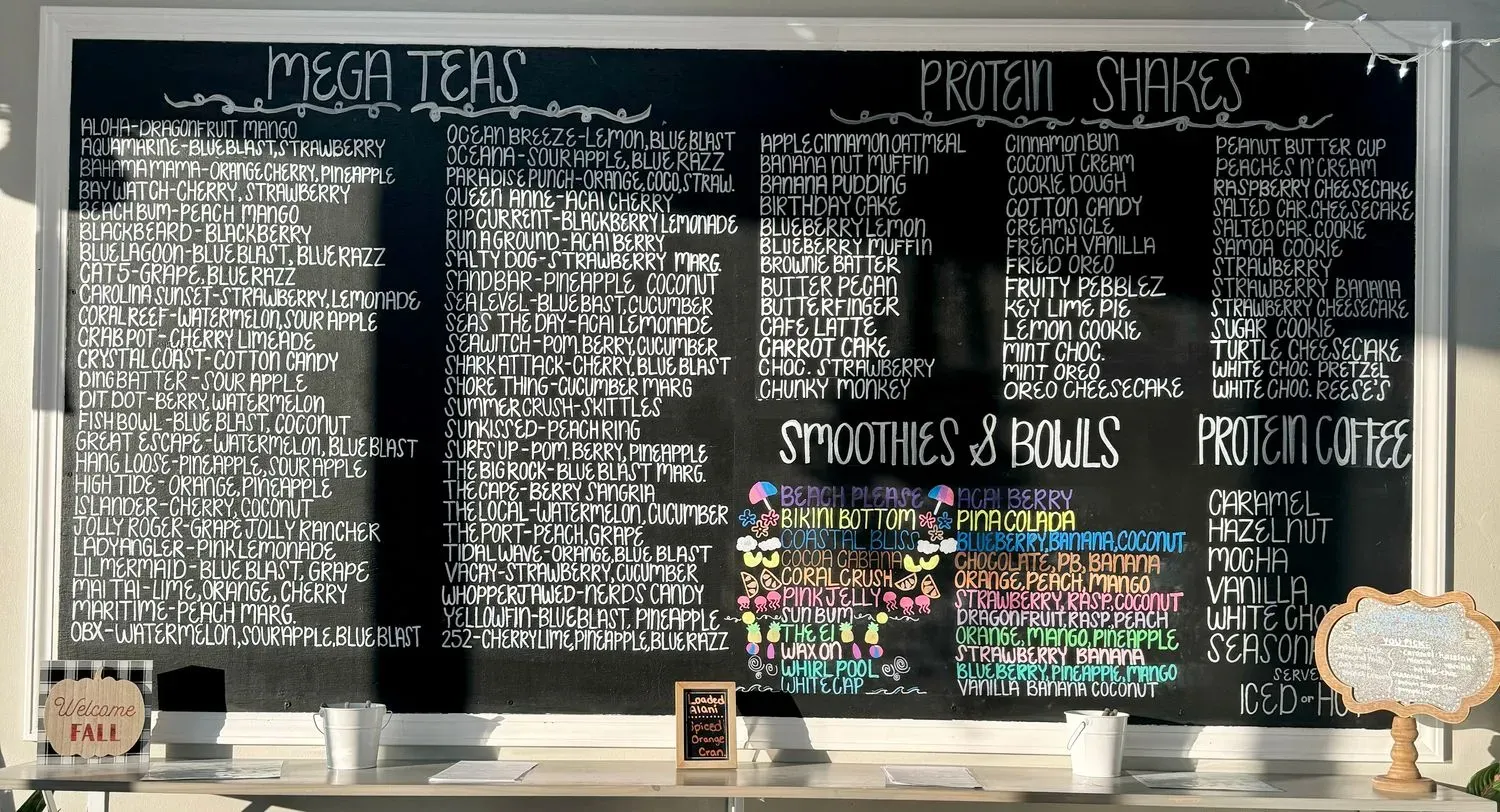 MEGA TEAS
ALOHA-DRAGONFRUIT MANGO
AQUAMARINE-BLUEBLAST, STRAWBERRY
BAHAMA MAMA-ORANGE CHERRY, PINEAPPLE
BAYWATCH-CHERRY, STRAWBERRY
BEACH BUM-PEACH MANGO
BLACKBEARD-BLACKBERRY
BLUE LAGOON-BLUE BLAST, BLUE RAZZ
CAT 5-GRAPE, BLUE RAZZ
CAROLINA SUNSET-STRAWBERRY, LEMONADE
CORAL REEF-WATERMELON, SOUR APPLE
CRAB POT-CHERRY LIMEADE
CRYSTAL COAST-COTTON CANDY
DINGBATTER-SOUR APPLE
DIT DOT-BERRY, WATERMELON
FISH BOWL-BLUE BLAST, COCONUT
GREAT ESCAPE-WATERMELON, BLUE BLAST
HANG LOOSE-PINEAPPLE, SOUR APPLE
HIGH TIDE-ORANGE, PINEAPPLE
ISLANDER-CHERRY, COCONUT
JOLLY ROGER-GRAPE JOLLY RANCHER
LADY ANGLER-PINK LEMONADE
LIL MERMAID-BLUE BLAST, GRAPE
MAI TAI-LIME, ORANGE, CHERRY
MARITIME-PEACH MARG.
OBX-WATERMELON, SOUR APPLE, BLUE BLAST
OCEAN BREEZE-LEMON, BLUE BLAST
OCEANA-SOUR APPLE, BLUE RAZZ
PARADISE PUNCH-ORANGE, COCO, STRAW.
QUEEN ANNE-ACAI CHERRY
RIP CURRENT-BLACKBERRY LEMONADE
RUN AGROUND-ACAI BERRY
SALTY DOG-STRAWBERRY MARG.
SANDBAR-PINEAPPLE COCONUT
SEA LEVEL-BLUE BAST, CUCUMBER
SEAS THE DAY-ACAI LEMONADE
SEAWITCH-POM. BERRY, CUCUMBER
SHARK ATTACK-CHERRY, BLUE BLAST
SHORE THING-CUCUMBER MARG
SUMMER CRUSH-SKITTLES
SUNKISSED-PEACH RING
SURFS UP-POM. BERRY, PINEAPPLE
THE BIG ROCK-BLUE BLAST MARG.
THE CAPE-BERRY SANGRIA
THE LOCAL-WATERMELON, CUCUMBER
THE PORT-PEACH, GRAPE
TIDAL WAVE-ORANGE, BLUE BLAST
VACAY-STRAWBERRY, CUCUMBER
WHOPPERJAWED-NERDS CANDY
YELLOWFIN-BLUE BLAST, PINEAPPLE
252-CHERRY LIME, PINEAPPLE, BLUE RAZZ
PROTEIN SHAKES
APPLE CINNAMON OATMEAL
BANANA NUT MUFFIN
BANANA PUDDING
BIRTHDAY CAKE
BLUEBERRY LEMON
BLUEBERRY MUFFIN
BROWNIE BATTER
BUTTER PECAN
BUTTERFINGER
CAFE LATTE
CARROT CAKE
CHOC. STRAWBERRY
CHUNKY MONKEY
CINNAMON BUN
COCONUT CREAM
COOKIE DOUGH
COTTON CANDY
CREAMSICLE
FRENCH VANILLA
FRIED OREO
FRUITY PEBBLEZ
KEY LIME PIE
LEMON COOKIE
MINT CHOC.
MINT OREO
OREO CHEESECAKE
PEANUT BUTTER CUP
PEACHES N' CREAM
RASPBERRY CHEESECAKE
SALTED CAR. CHEESECAKE
SALTED CAR. COOKIE
SAMOA COOKIE
STRAWBERRY
STRAWBERRY BANANA
STRAWBERRY CHEESECAKE
SUGAR COOKIE
TURTLE CHEESECAKE
WHITE CHOC. PRETZEL
WHITE CHOC. REESE'S
SMOOTHIES & BOWLS
BEACH PLEASE ACAI BERRY
BIKINI BOTTOM PINA COLADA
COASTAL BLISS BLUEBERRY, BANANA, COCONUT
COCOA CABANA CHOCOLATE, PB, BANANA
CORAL CRUSH ORANGE, PEACH, MANGO
PINK JELLY STRAWBERRY, RASP. COCONUT
SUN BUM DRAGONFRUIT, RASP. PEACH
THE EI ORANGE, MANGO, PINEAPPLE
WAX ON STRAWBERRY BANANA
WHIRLPOOL BLUEBERRY, PINEAPPLE, MANGO
WHITECAP VANILLA BANANA COCONUT
PROTEIN COFFEE
CARAMEL
HAZELNUT
MOCHA
VANILLA
WHITE CHO
SEASON
SERVE
ICED or HO
Welcome
FALL
Loaded
Alani
Spiced
Orange
Cran.